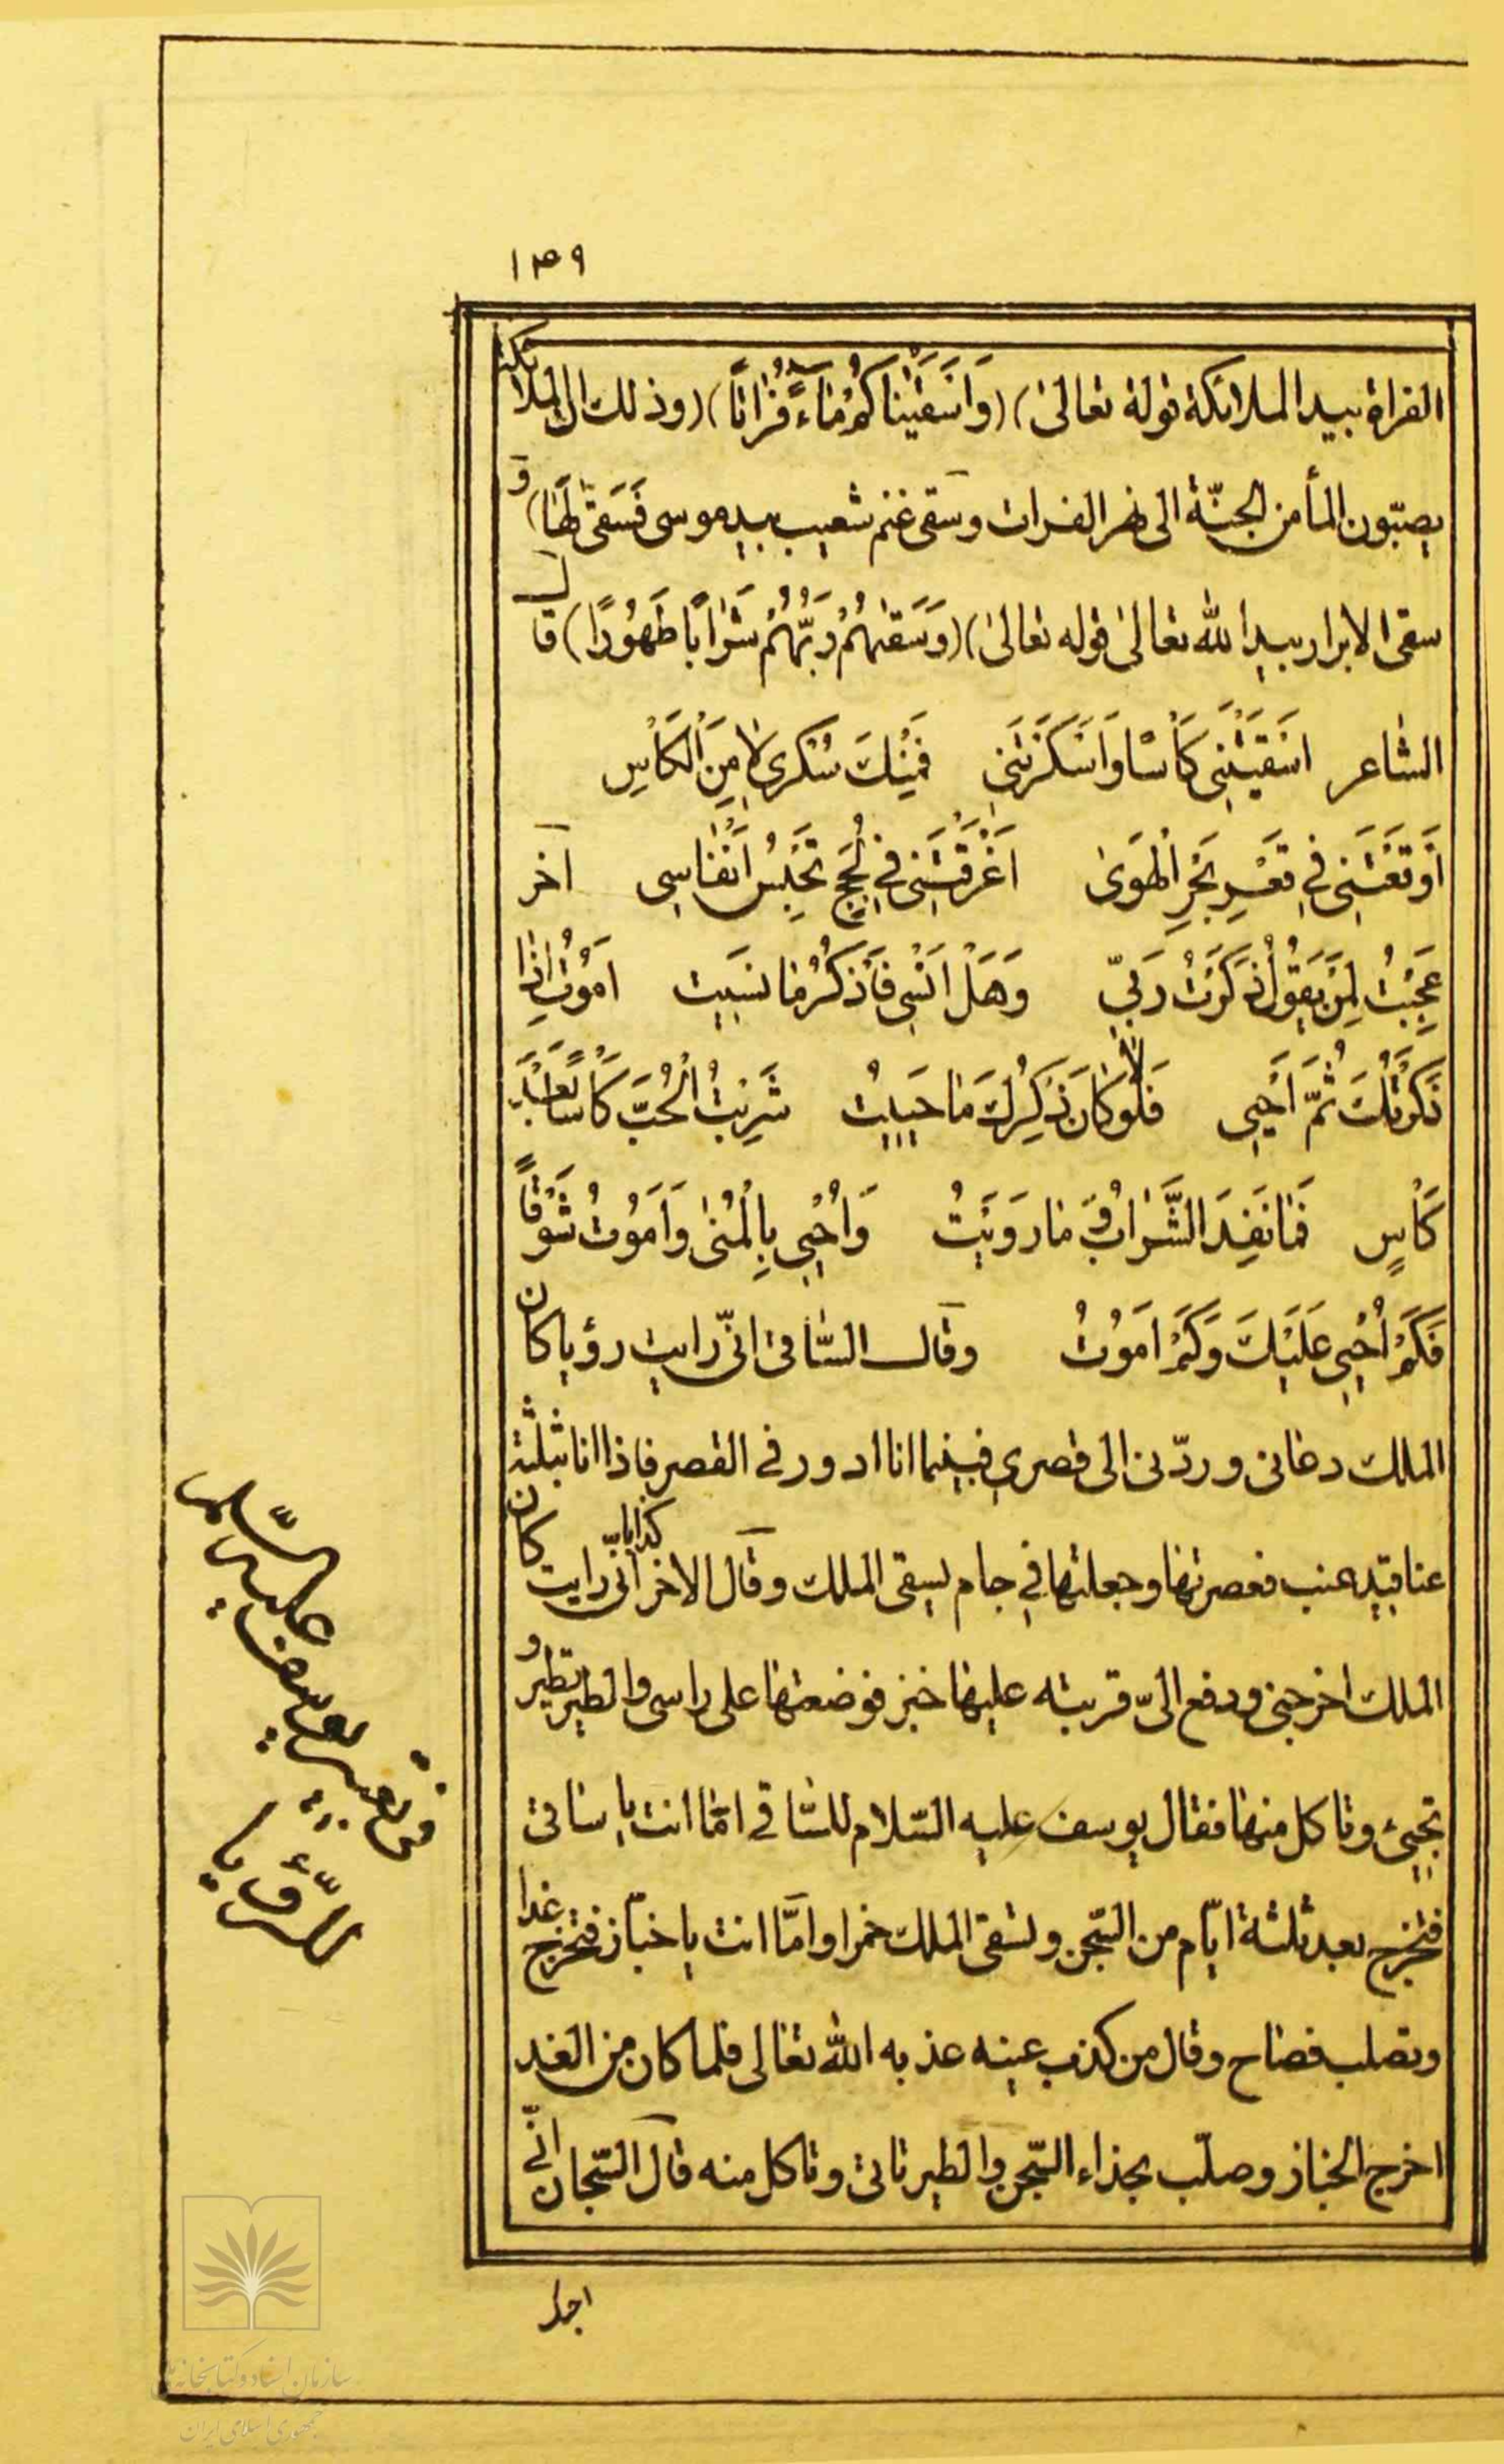 ۱۳۹
الفراة بيد الملائكة قوله تعالى) (وَاَسْقَيْنَاكُمْ مَاءً فُرَاتًا) (وذلك ان الملائكة
يصبّون المأ من الجنّة الى نهر الفرات وسقى غنم شعيب بيد موسى فَسَقىٰ لَهَا) و
سقى الابرار بيد الله تعالىٰ قوله تعالىٰ) (وَسَقٰيهُمْ رَبُّهُمْ شَرَابًا طَهُورًا) قال
الشاعر اَسْقَيْتَنِى كَأْسًا وَاَسْكَرْتَنِى فَمِنْكَ سُكْرِىْ لَا مِنَ الْكَاْسِ
اَوْقَعْتَنِى فِى قَعْرِ بَحْرِ الْهَوىٰ اَغْرَقْتَنِى فِى لُجَجٍ تَحْبِسُ اَنْفَاسِى آخر
عَجِبْتُ لِمَنْ يَقُولُ ذَكَرْتُ رَبِّى وَهَلْ اَنْسٰى فَاَذْكُرُ مَا نَسَيْت اَمُوتُ اِذَا
ذَكَرْتُكَ ثُمَّ اَحْيٰى فَلَوْلَا كَانَ ذِكْرِكَ مَا حَيَيْتُ شَرِبْتُ الْحُبَّ كَاْسًا بَعْدَ
كَاْسٍ فَمَا نَفِدَ الشَّرَابُ وَ مَا رَوَيْتُ وَاُحْيٰى بِالْمُنىٰ وَاَمُوتُ شَوْقًا
فَكَمْ اُحْيٰى عَلَيْكَ وَكَمْ اَمُوتُ وقال السّاقى انّى رايت رؤيا كان
الملك دعانى وردّنى الى قصرى فبينما انا ادور فى القصر فاذا انا بثلثة
عناقيد عنب فعصرتها وجعلتها فى جام ليسقى الملك وقال الاخر كذابا انّى رايت كان
الملك اخرجنى ودفع الىّ قربته عليها خبز فوضعتها على راسى والطير تطير و
تجيئ وتاكل منها فقال يوسف عليه السّلام للسّاقى امّا انت يا ساقى
فتخرج بعد ثلثة ايّام من السّجن وتسقى الملك خمرا وامّا انت يا خبّاز فتخرج غدا
وتصلب فصاح وقال من كذب عينه عذبه الله تعالى فلما كان من الغد
اخرج الخباز وصلّب بحذاء السّجن والطير تاتى وتاكل منه قال السّجان انّى
فى تعبير يوسف عليه السّلم
الرّؤيا
سازمان اسناد و کتابخانه ملی
جمهوری اسلامی ایران